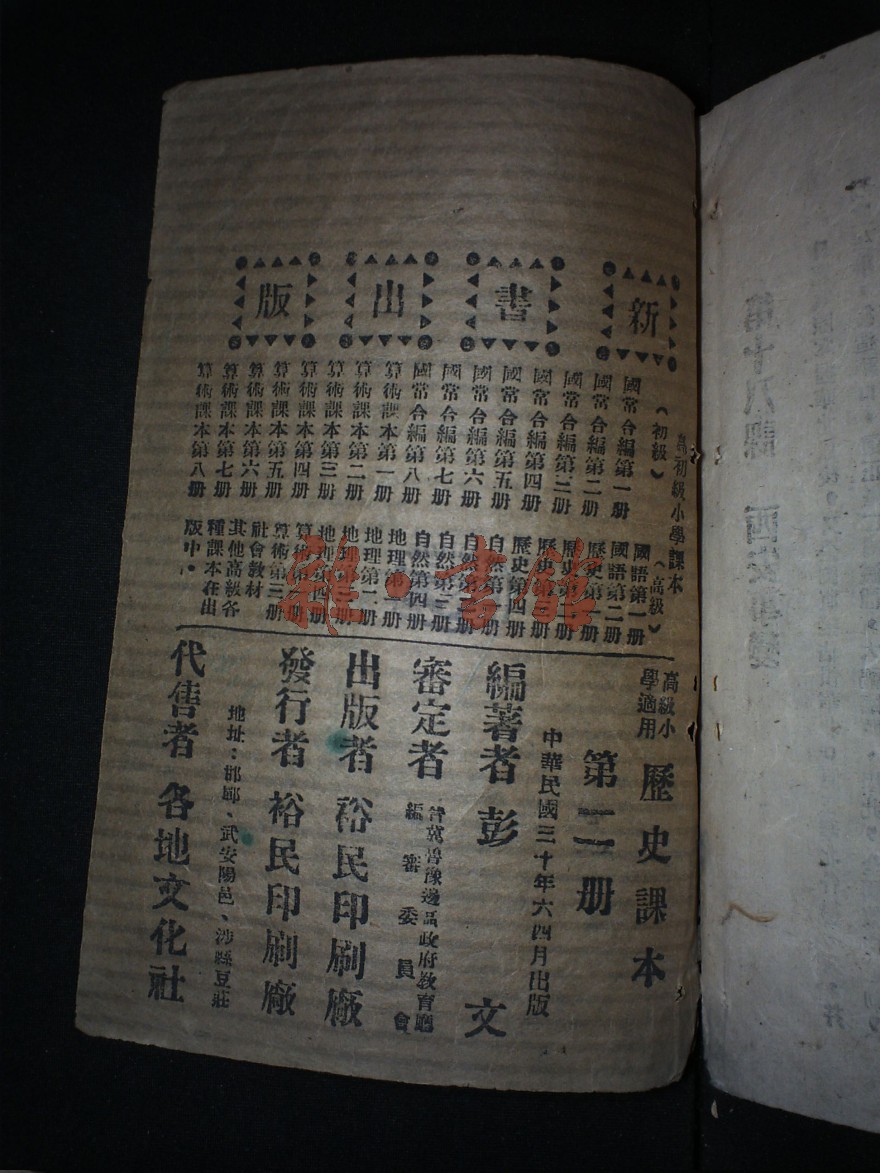 新書出版
高初級小學課本
（初級）
國常合編第一册
國常合編第二册
國常合編第三册
國常合編第四册
國常合編第五册
國常合編第六册
國常合編第七册
國常合編第八册
算術課本第一册
算術課本第二册
算術課本第三册
算術課本第四册
算術課本第五册
算術課本第六册
算術課本第七册
算術課本第八册
（高級）
國語第一册
國語第二册
歷史第一册
歷史第二册
歷史第三册
歷史第四册
自然第一册
自然第二册
自然第三册
自然第四册
地理第一册
地理第二册
地理第三册
地理第四册
算術第一册
算術第三册
社會教材
其他高級各
種課本在出
版中。
高級小
學適用
歷史課本
第二册
中華民國三十年六四月出版
編著者 彭文
審定者 晉冀魯豫邊區政府教育廳
編審委員會
出版者 裕民印刷廠
發行者 裕民印刷廠
地址：邯鄲、武安陽邑、涉縣豆莊
代售者 各地文化社
第十八課 西安事變
雜·書館